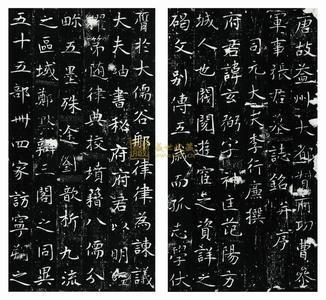 唐故益州大都督府功曹參
軍事張君墓誌銘并序
司元大夫李行廉撰
府君諱玄弼字神匡范陽方
城人也閥閱遊宦之資詳之
碣文別傳五歲而孤志學伏
膺於大儒谷那律律為諫議
大夫紬書秘府府君以明經
擢第隨律典校墳籍八儒分
畛五墨殊途劉歆析九流
之區域鄭默辯三閣之同異
五十五部卅四家訪寧朔之